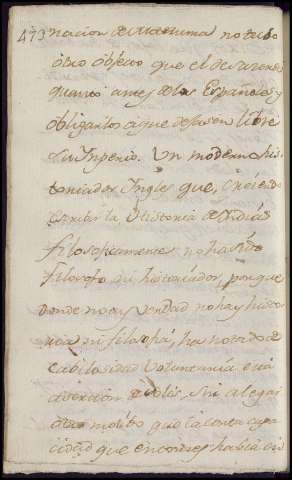 473 nacion de Motezuma no tubo
otro objeto que el desarraigar
quanto antes de los Españoles y
obligarlos a que dejasen libre
su Imperio. Un moderno his-
toriador Ingles que, creiendo
escribir la Historia de Indias
filosoficamente no ha sido
filosofo ni historiador, porque
donde no ay verdad no hay histo-
ria ni filosofia, ha notado de
cabilosidad voluntaria esta
asercion de Solis, sin alegar
otro motibo que la corta capa-
cidad que entonces habia en